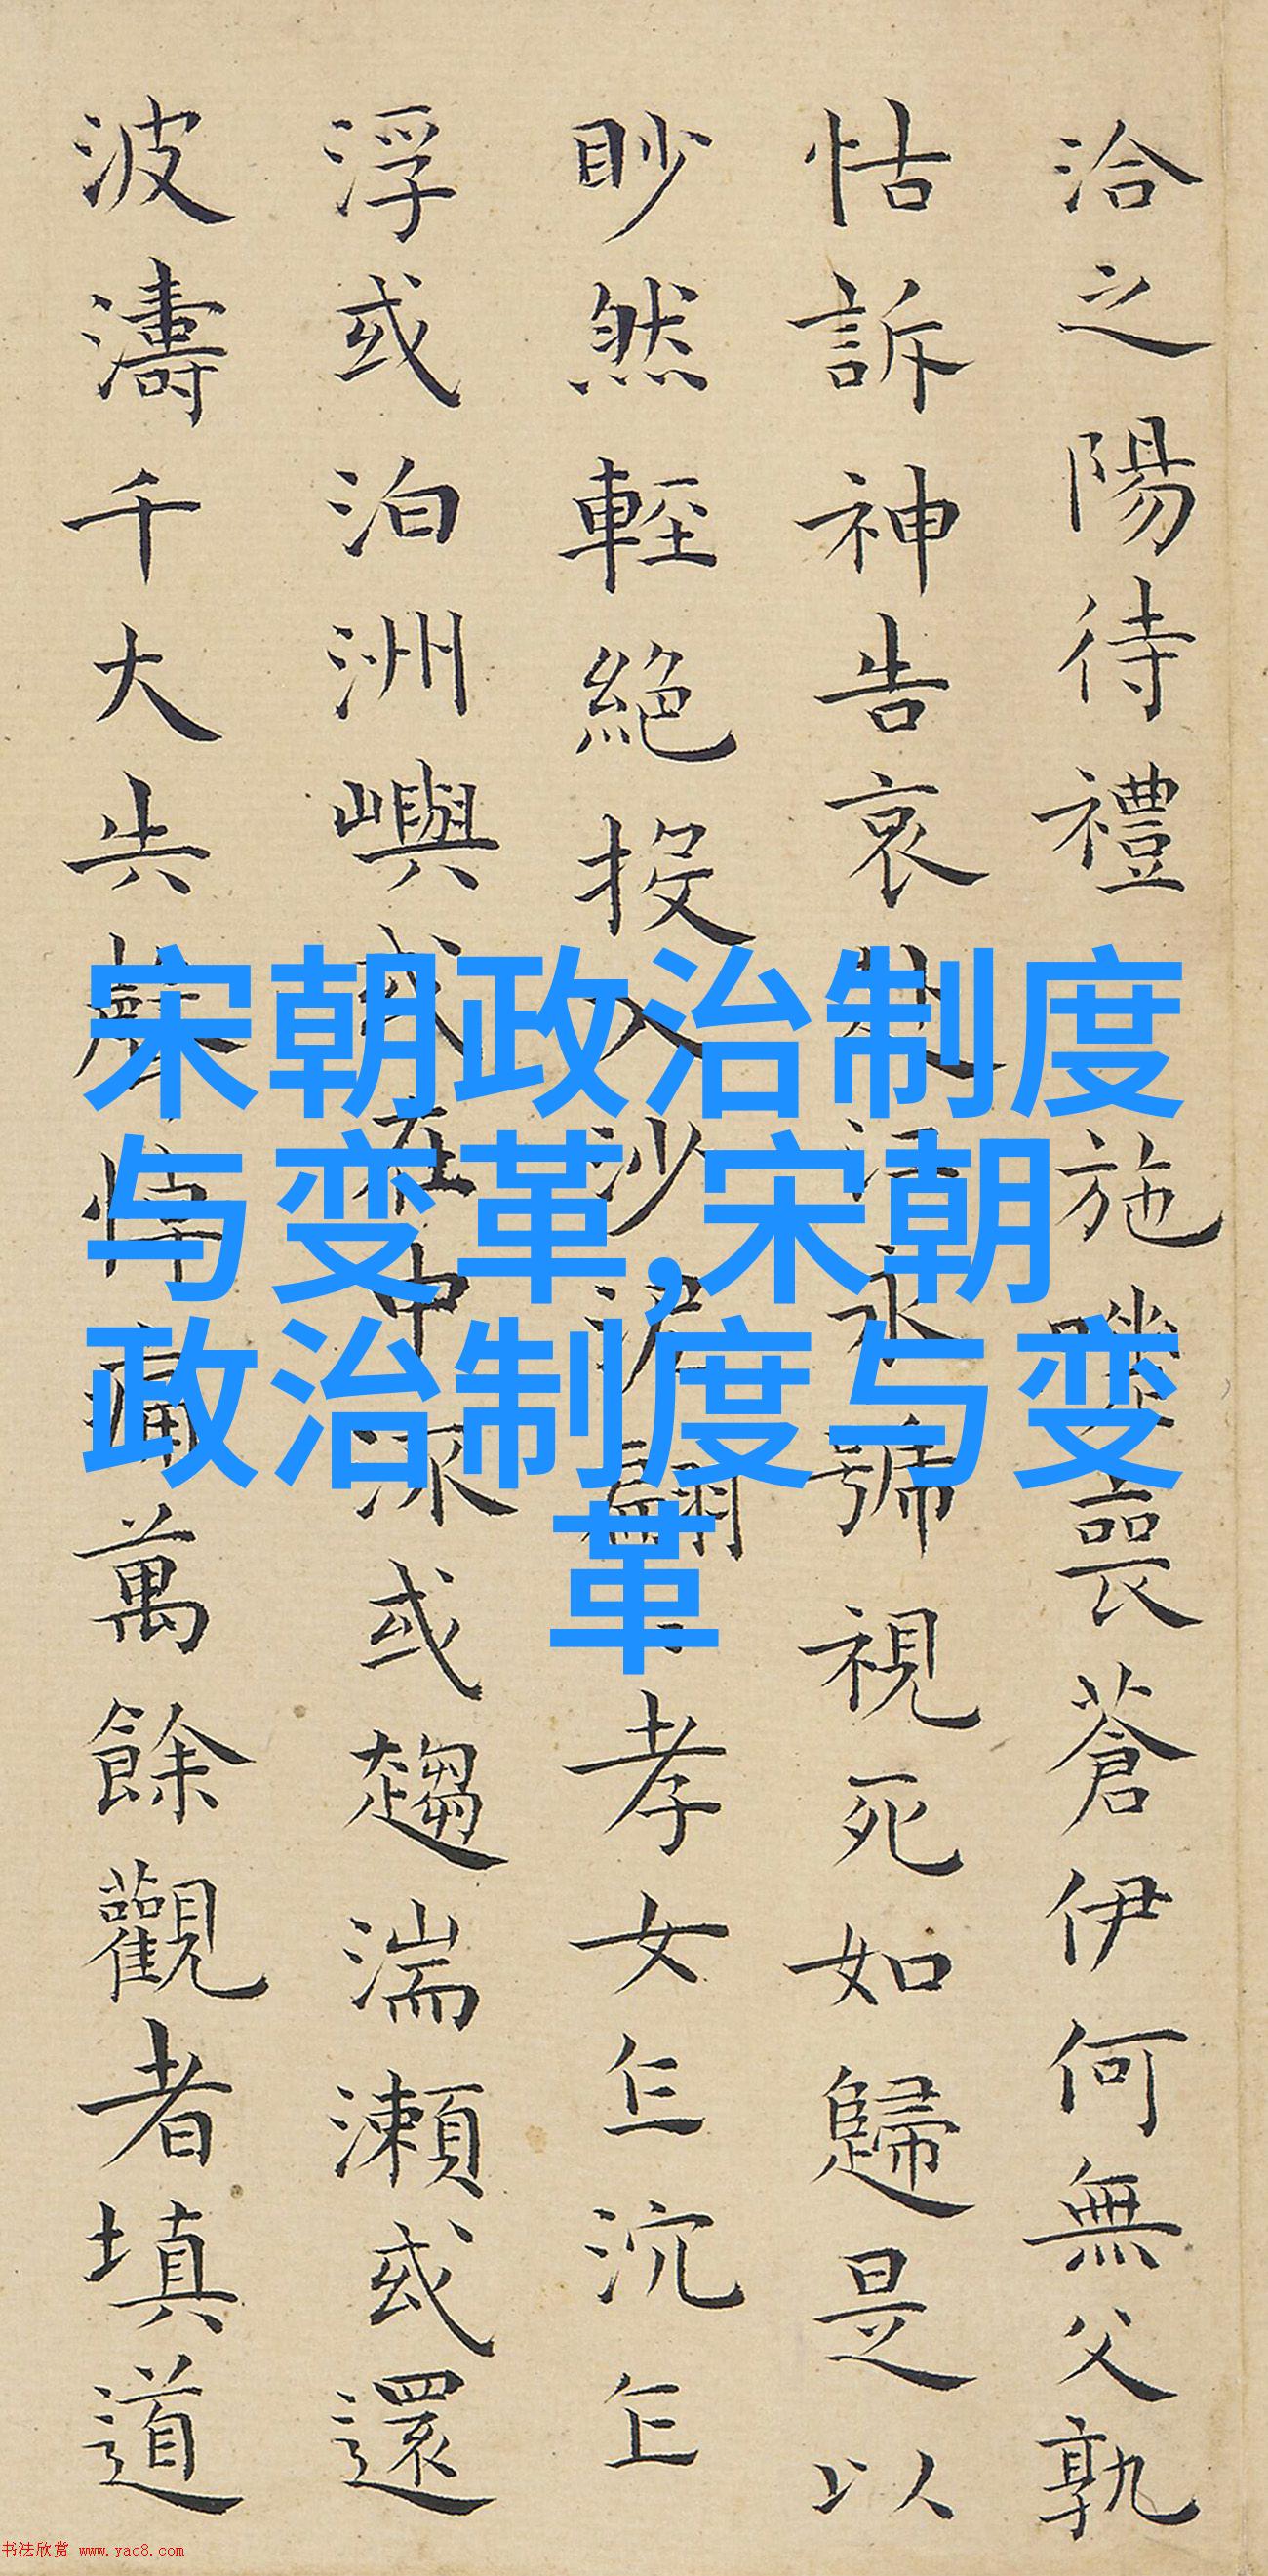 洽之陽待禮
施
喪蒼伊何無父孰
怙訴神告哀
永號視死如歸是以
眇然輕絕投入沙泥翩
孝女乍沉乍
浮或泊洲嶼或在中
或趨湍瀨或還
波濤千
大
萬餘觀者填道
宋朝政治制度
与变革,宋朝
政治制度与变
革
书法欣赏 www.yac8.com